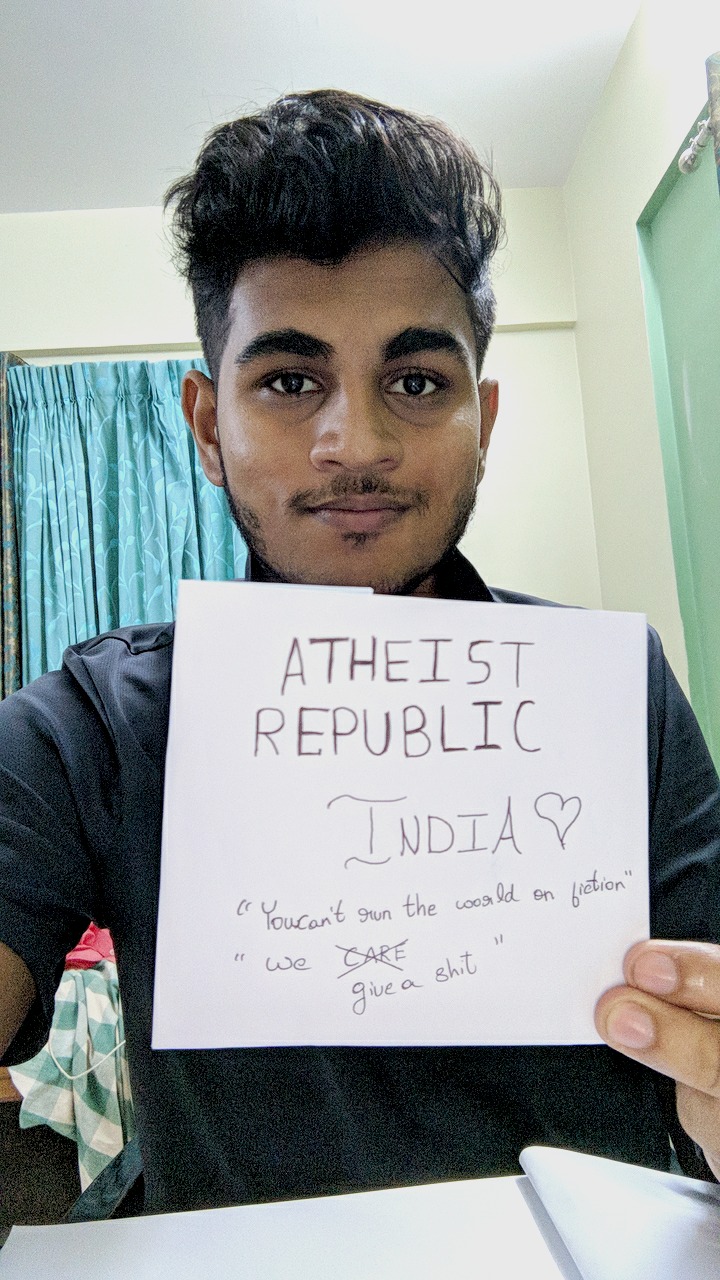 ATHEIST
REPUBLIC
INDIA
"Youcan't run the world on fiction"
"we CARE"
give a shit